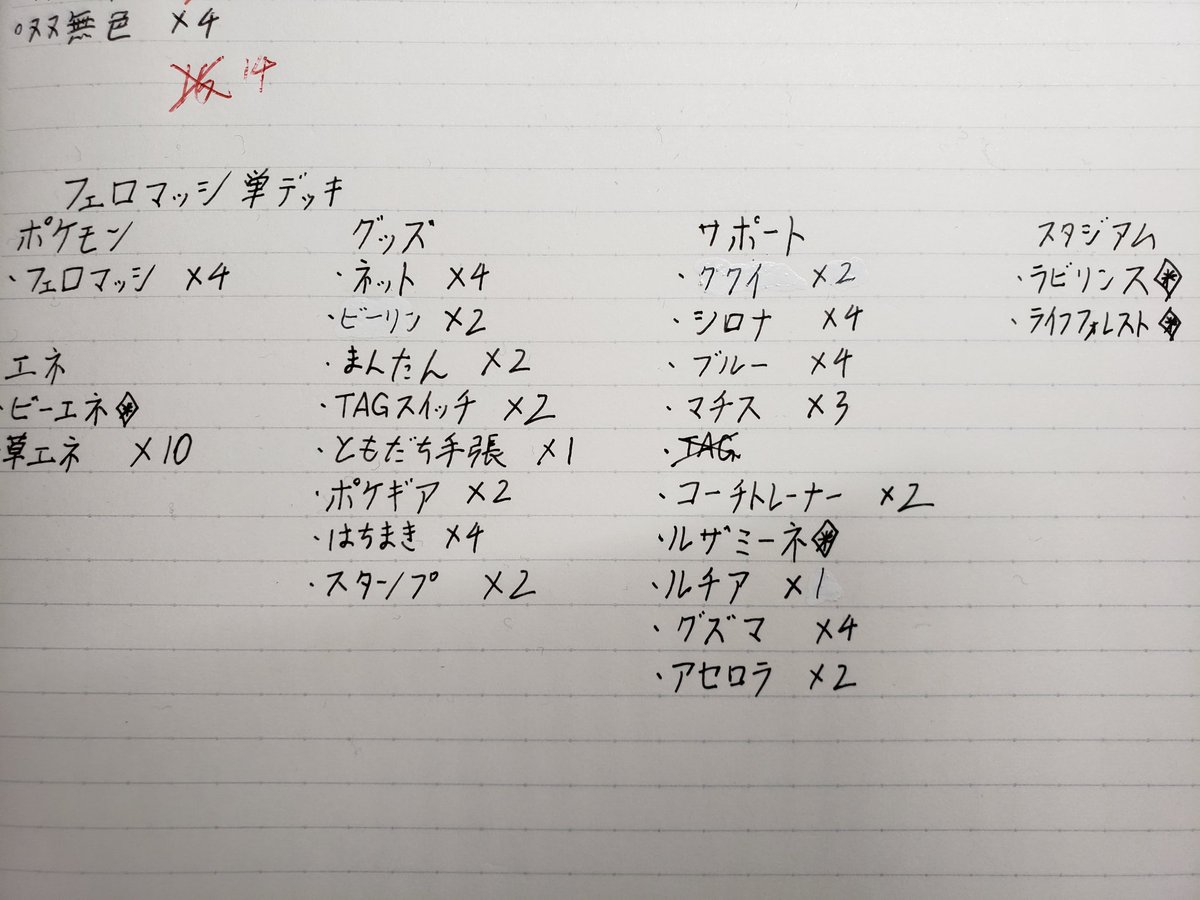 ・双無色 ×4
14
フェロマッシ単デッキ
ポケモン
・フェロマッシ ×4
エネ
・ビーエネ
草エネ ×10
グッズ
・ネット ×4
・ビーリン ×2
・まんたん ×2
・TAGスイッチ ×2
・ともだち手張 ×1
・ポケギア ×2
・はちまき ×4
・スタンプ ×2
サポート
・ククイ ×2
・シロナ ×4
・ブルー ×4
・マチス ×3
・TAG
・コーチトレーナー ×2
・ルザミーネ
・ルチア ×1
・グズマ ×4
・アセロラ ×2
スタジアム
・ラビリンス
・ライフフォレスト